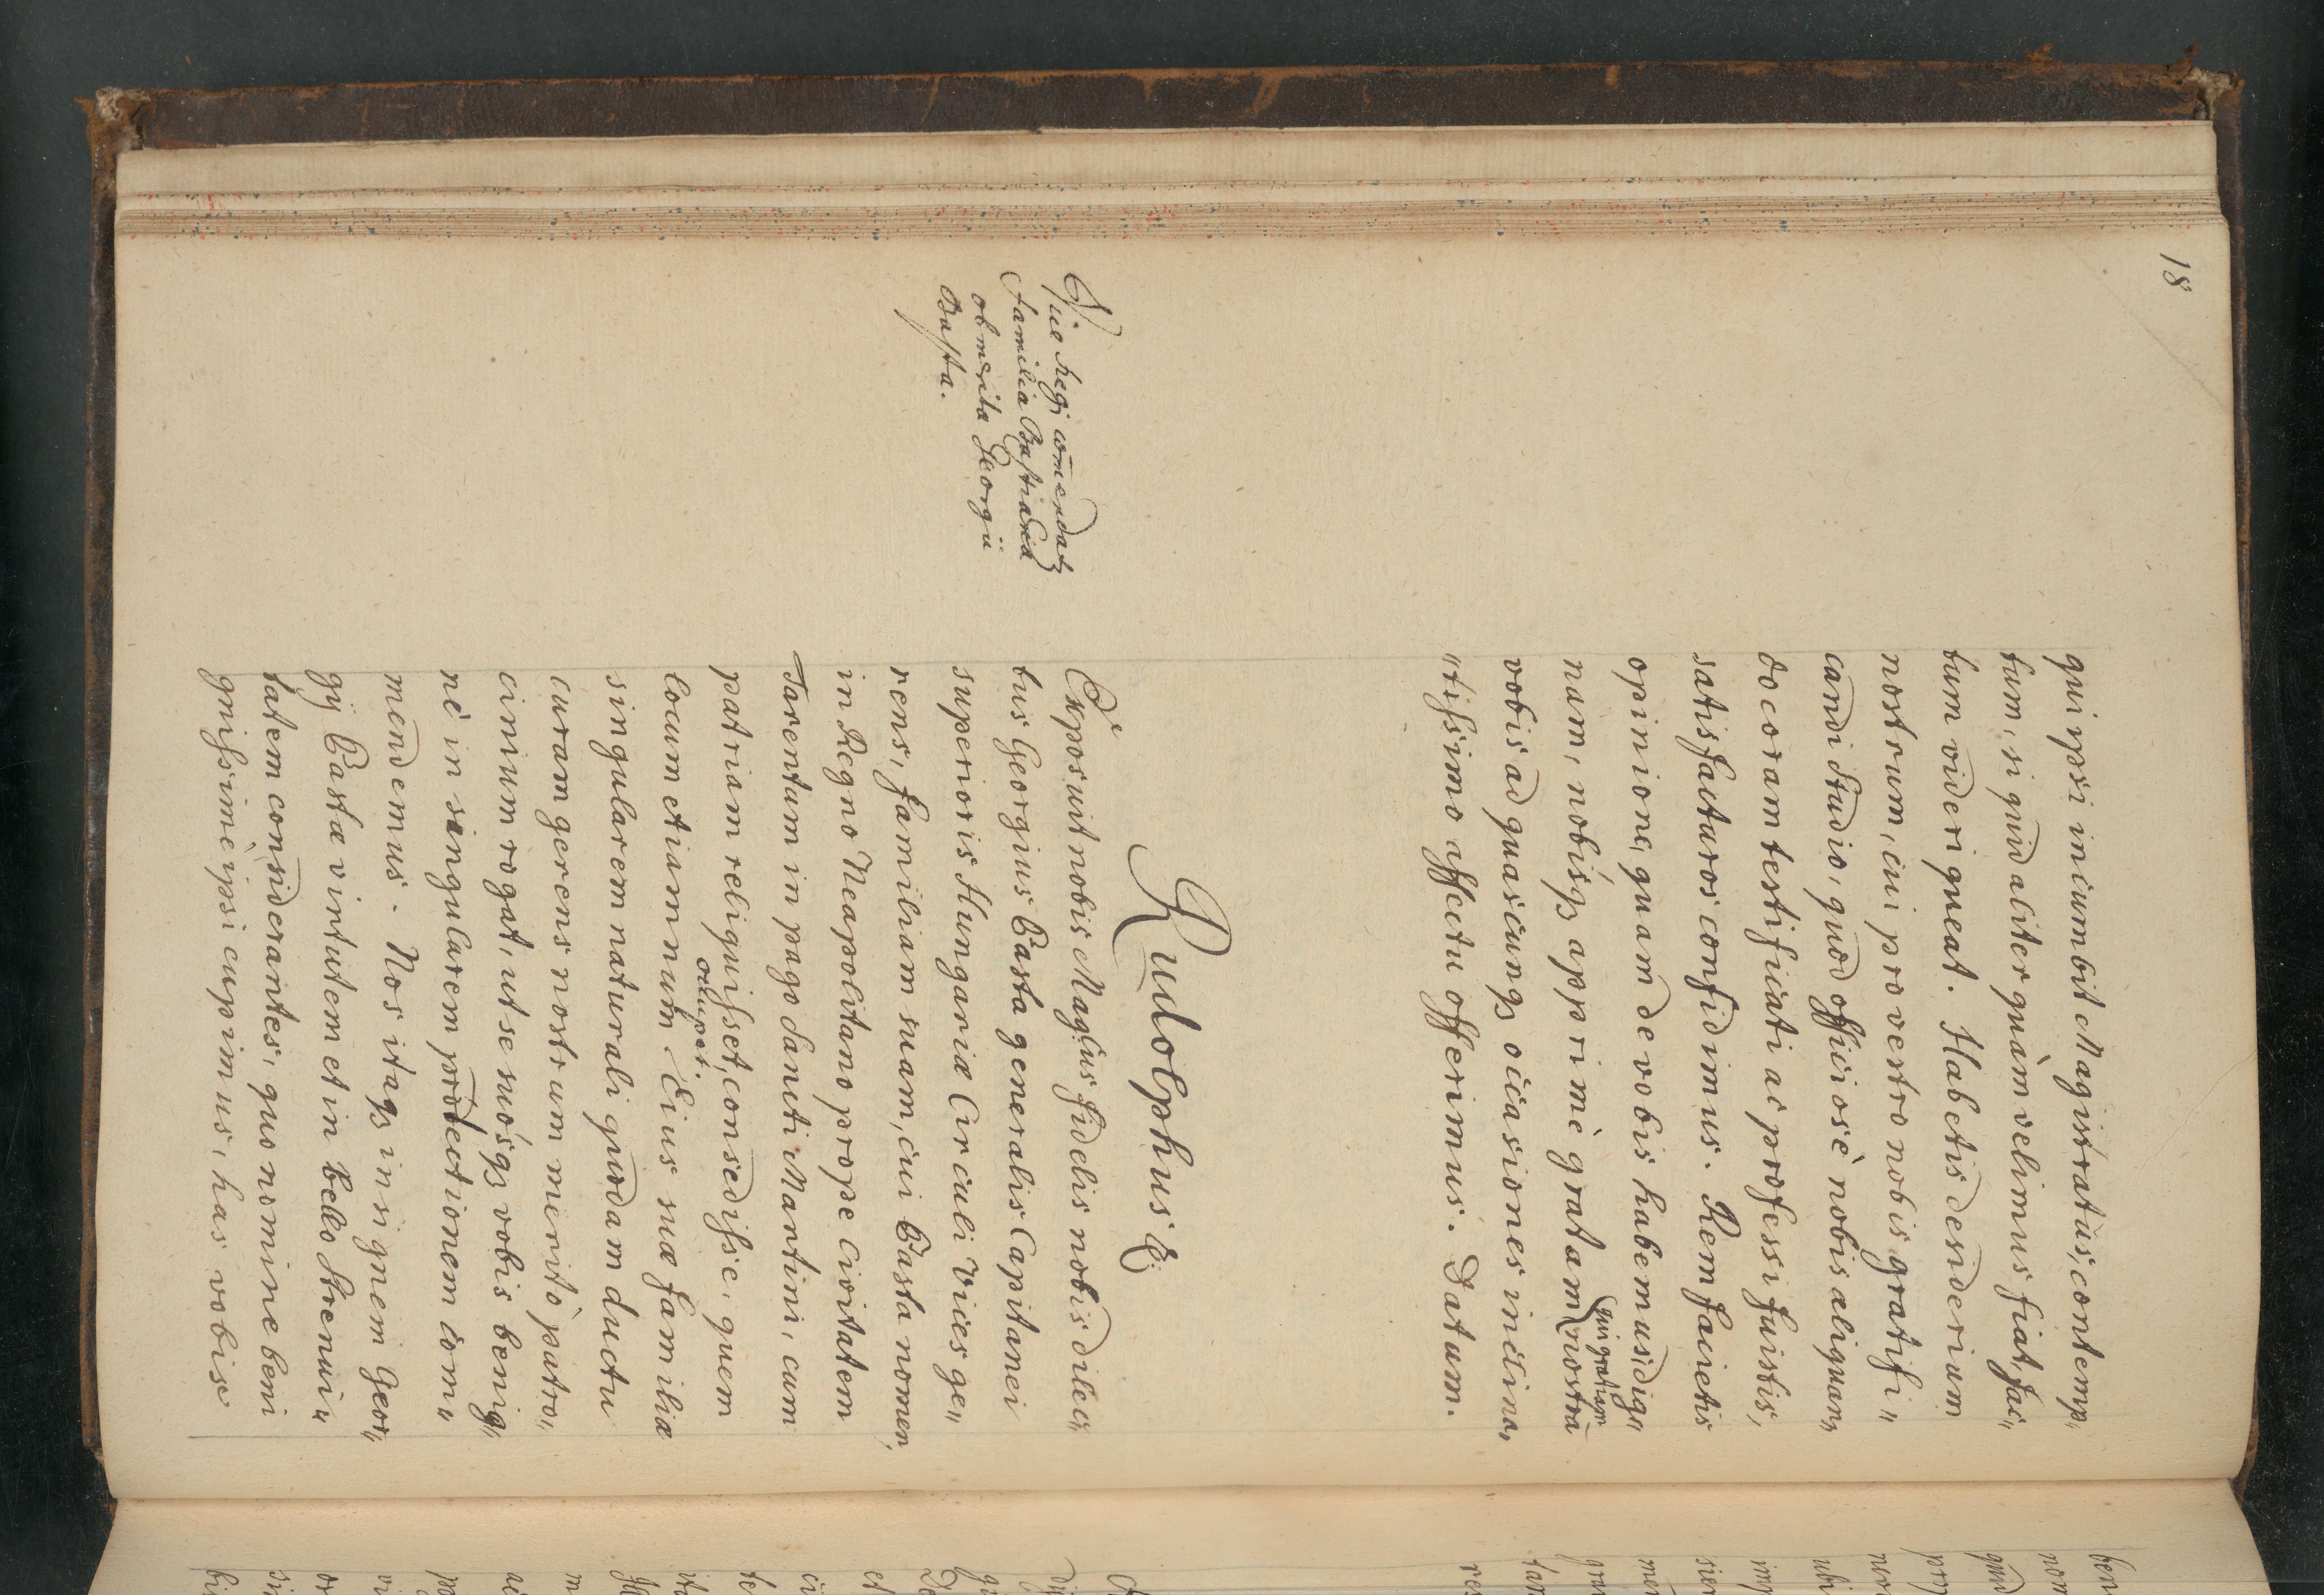 18
qui ipsi incumbit Magistratus, contemp„
tum, si quid aliter quàm velimus fiat, fac„
tum videri queat. Habetis desiderium
nostrum, cui pro vestro nobis gratifi„
candi studio, quod officiosè nobis aliquan„
do coram testificati ac professi fuistis,
satisfacturos confidimus. Rem facietis
opinione, quam de vobis habemus, dig„
nam, nobisq₃ apprimè gratam, qui gratiam nostra
vobis ad quascunq₃ occasiones inclina„
„tissimo affectu offerimus. Datum.
Rudolphus &
Viae Regi com̄endat₃
familia Bastiana
ob merita Georgii
Basta.
Exposuit nobis Magcus fidelis nobis dilec„
tus Georgius Basta generalis Capitanei
superioris Hungariæ Circuli vices ge„
rens, familiam suam, cui Basta nomen,
in Regno Neapolitano prope Civitatem
Tarentum in pago Sancti Martini, cum
patriam reliquisset, consedisse, quem
locum etiamnum Eius suæ familia
occupet.
singularem naturali quodam ductu
curam gerens nostrum meritò patro„
cinium rogat, ut se suósq₃ vobis benig„
nè in singularem protectionem com̄„
mendemus. Nos itaq₃ insignem Geor„
gij Bastæ virtutem et in bello strenui„
tatem considerantes, quo nomine beni
gnissimè ipsi cupimus, has vobise